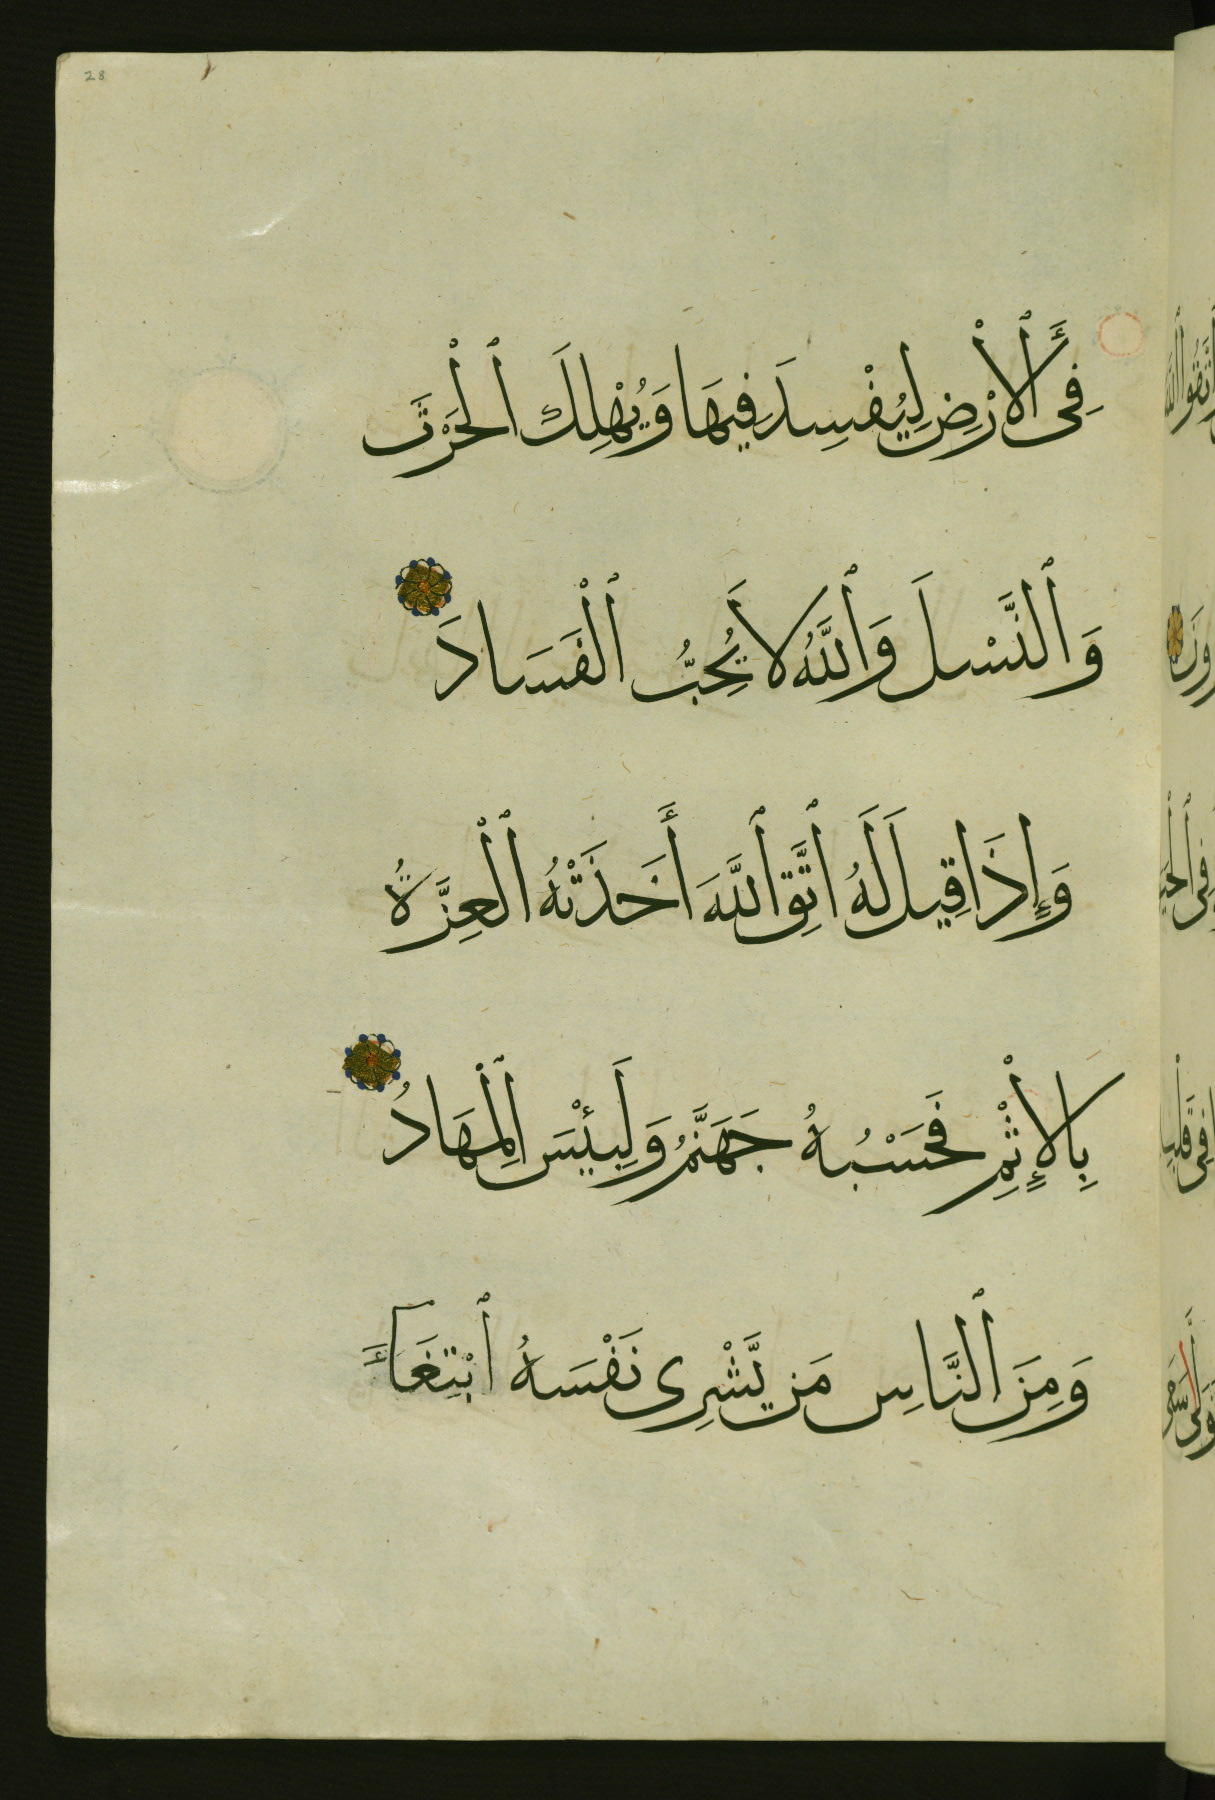 28
فِى ٱلْأَرْضِ لِيُفْسِدَ فِيهَا وَيُهْلِكَ ٱلْحَرْثَ
وَٱلنَّسْلَ وَٱللَّهُ لَا يُحِبُّ ٱلْفَسَادَ
وَإِذَا قِيلَ لَهُ ٱتَّقِ ٱللَّهَ أَخَذَتْهُ ٱلْعِزَّةُ
بِالْإِثْمِ فَحَسْبُهُ جَهَنَّمُ وَلَبِئْسَ ٱلْمِهَادُ
وَمِنَ ٱلنَّاسِ مَن يَّشْرِى نَفْسَهُ ٱبْتِغَآءَ